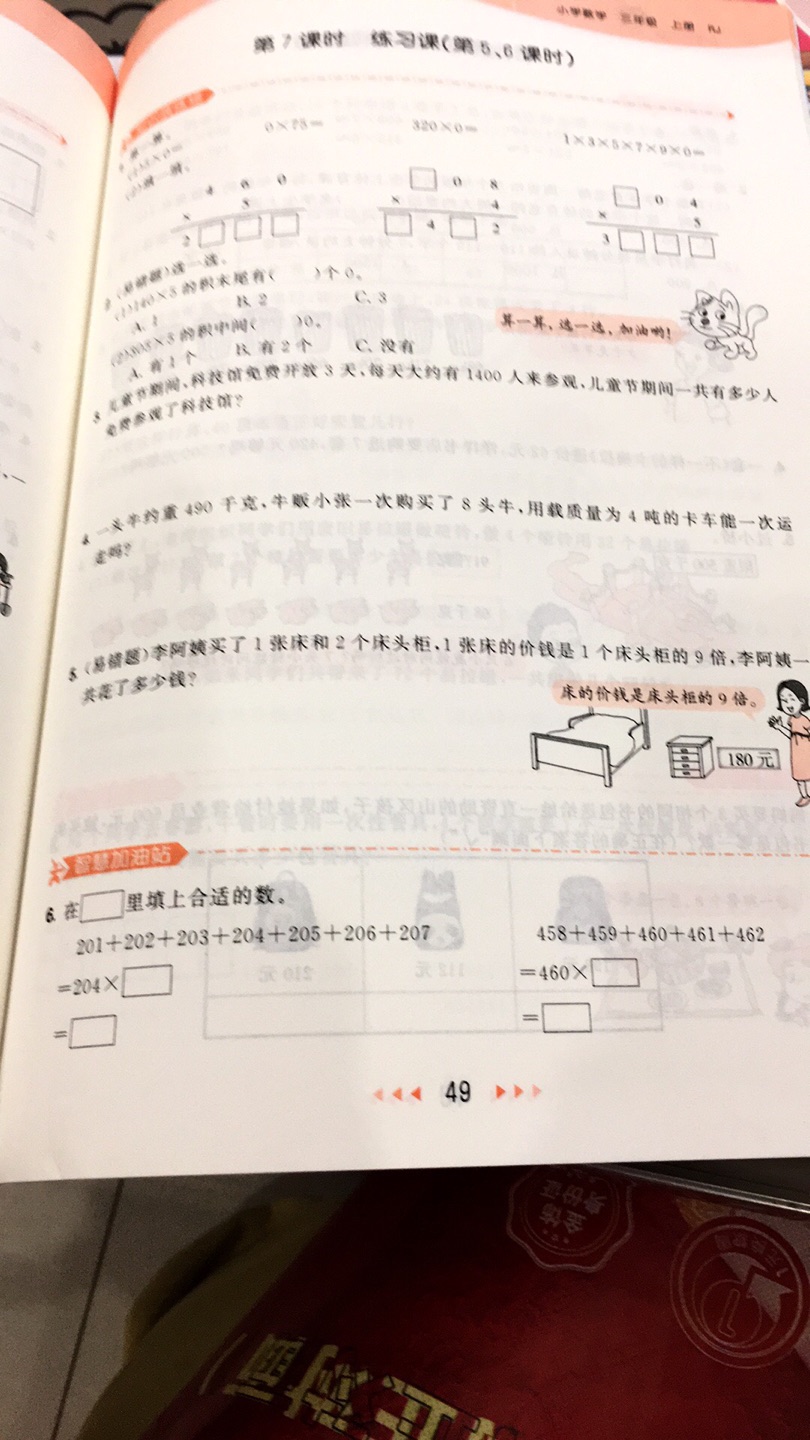 小学数学 三年级 上册 RJ
第 7 课时 练习课(第 5、6 课时)
0×75= 320×0= 1×3×5×7×9×0=
4 0 0 □ 0 8 □ 0 4
× 5 × 4 × 5
2 □ □ □ □ 4 □ 2 3 □ □ □
(易错题)选一选。
(1)140×5 的积末尾有( )个 0。
A. 1 B. 2 C. 3
算一算,选一选,加油哟!
(2)305×5 的积中间( )0。
A. 有 1 个 B. 有 2 个 C. 没有
3 儿童节期间,科技馆免费开放 3 天,每天大约有 1400 人来参观,儿童节期间一共有多少人
免费参观了科技馆?
4 一头牛约重 490 千克,牛贩小张一次购买了 8 头牛,用载质量为 4 吨的卡车能一次运
走吗?
5 (易错题)李阿姨买了 1 张床和 2 个床头柜,1 张床的价钱是 1 个床头柜的 9 倍,李阿姨一
共花了多少钱?
床的价钱是床头柜的 9 倍。
180 元
智慧加油站
6. 在□里填上合适的数。
201+202+203+204+205+206+207 458+459+460+461+462
=204×□ =460×□
=□ =□
49